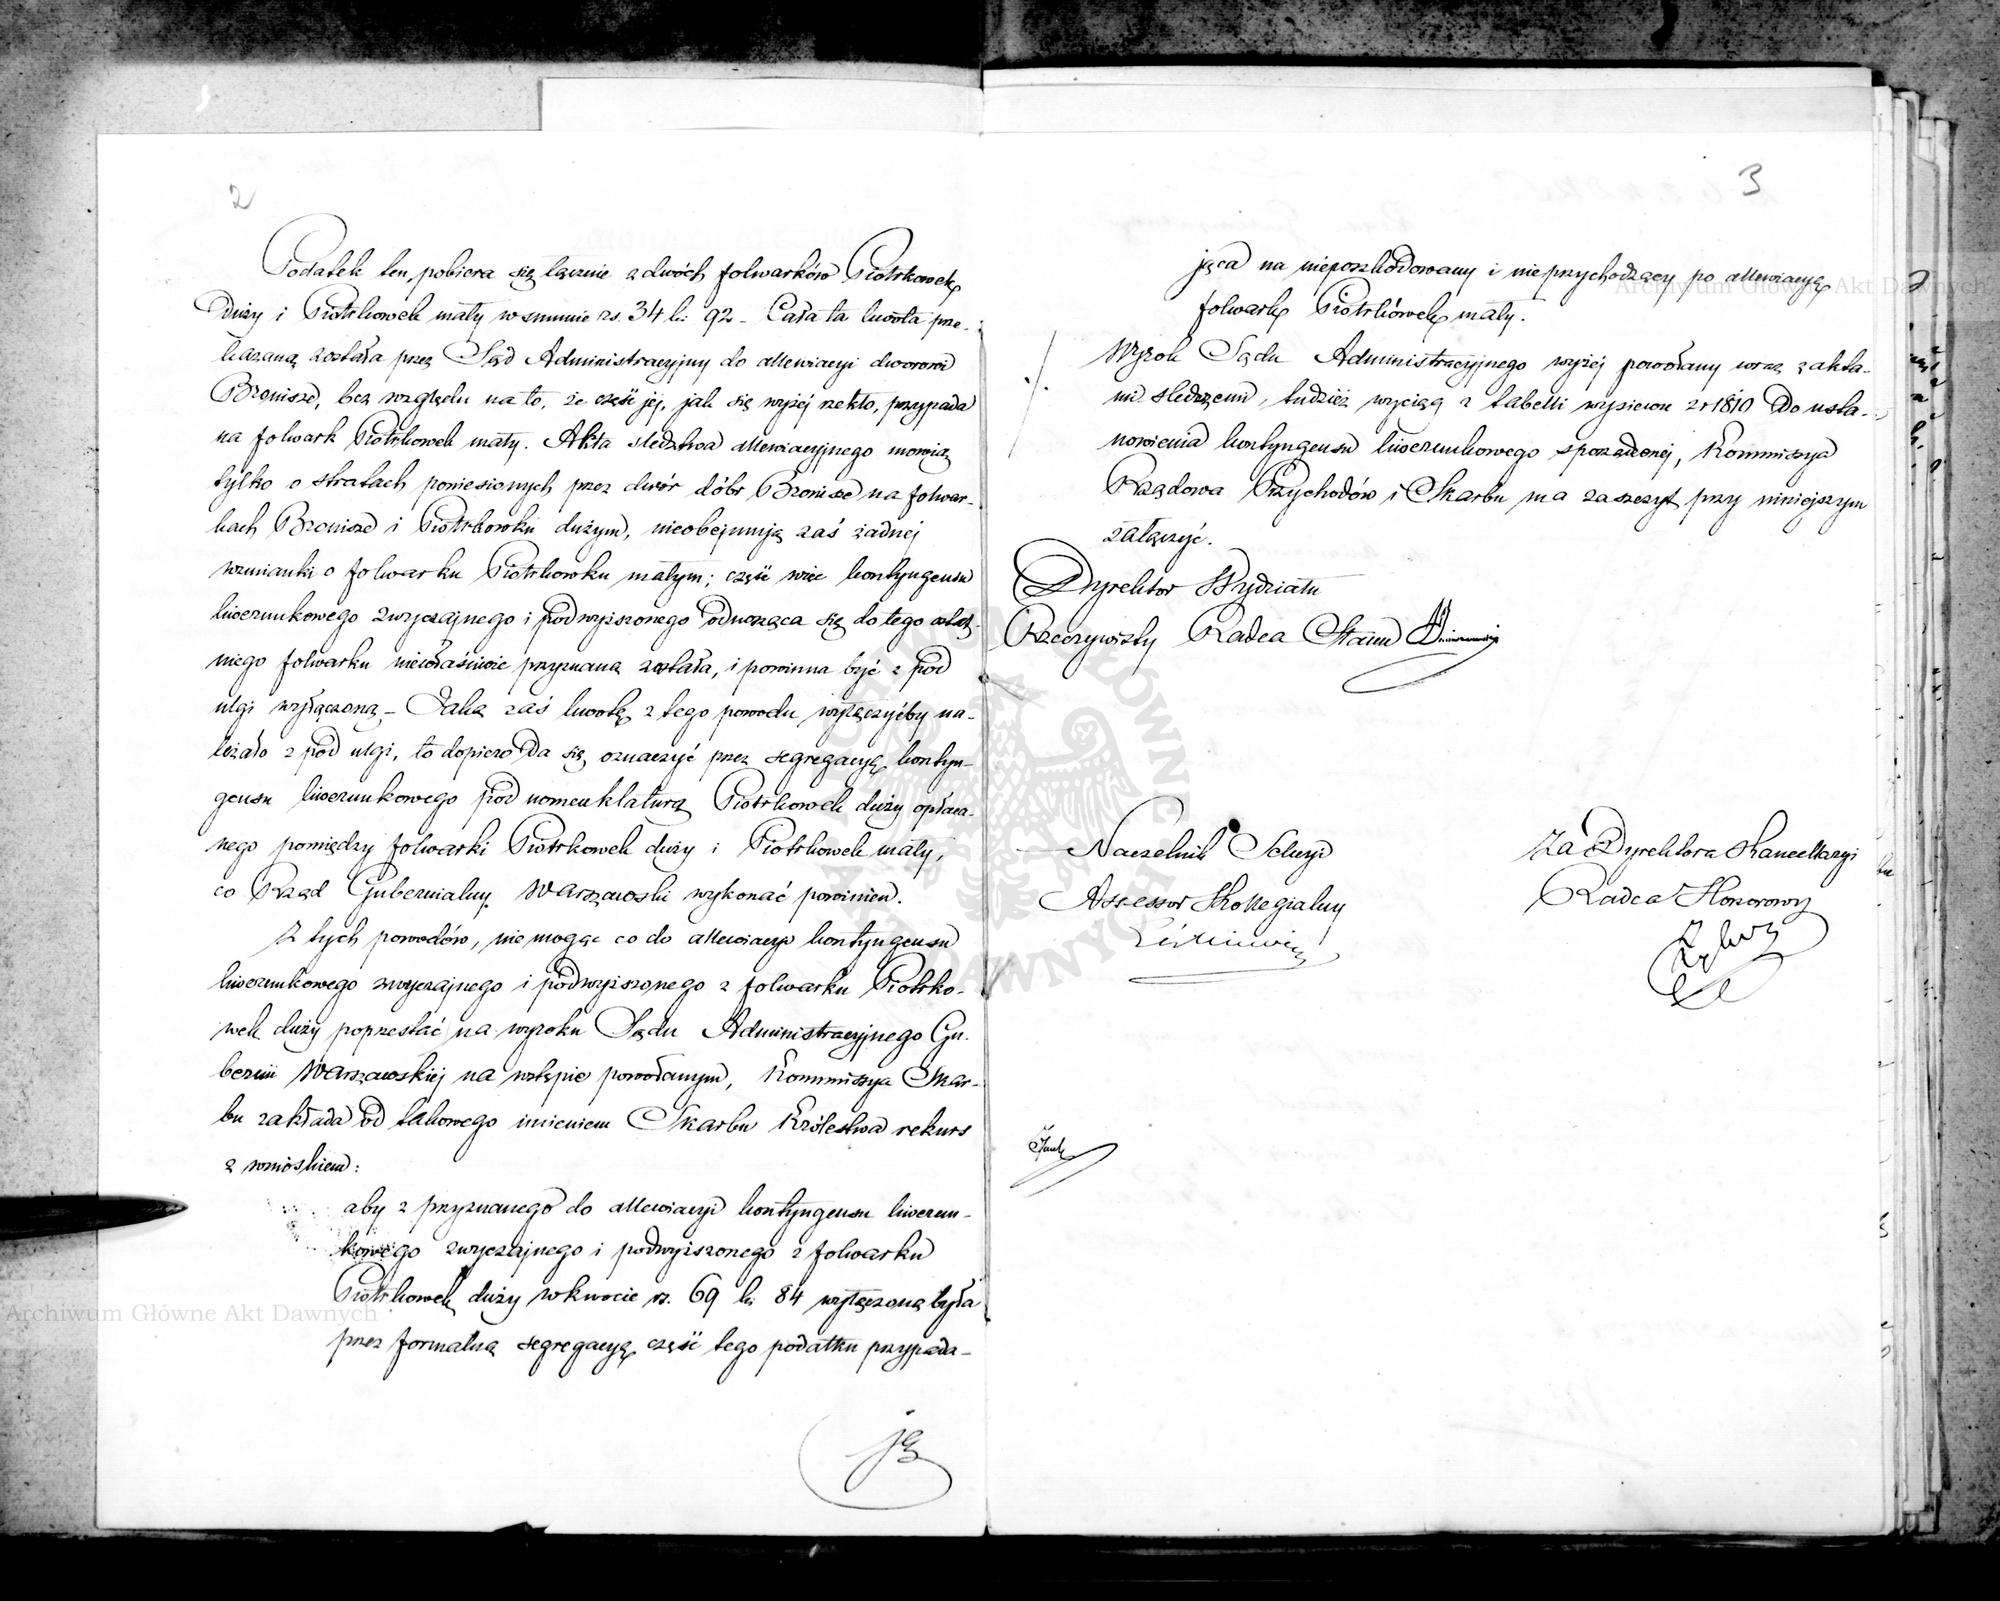 2
Podatek ten, pobiera się łącznie z dwóch folwarków Piotrkowek
Duży i Piotrkowek mały w summie rs. 34 k: 92 – Cała ta kwota prze-
kazaną została przez Sąd Administracyjny do allewiacyi dworowi
Bronisze, bez względu na to, że część jej, jak się wyżej rzekło, przypada
na folwark Piotrkowek mały. Akta śledztwa allewiacyjnego mowią
tylko o stratach poniesionych przez dwór dóbr Bronisze na folwar-
kach Bronisze i Piotrkowku dużym, nieobejmują zaś żadnej
wzmianki o folwarku Piotrkowku małym; część więc kontyngensu
liwerunkowego zwyczajnego i podwyższonego odnosząca się do tego
niego folwarku niewłaściwie przyznaną została, i powinna być z pod
ulgi wyłączoną – Jaką zaś kwotę z tego powodu wyłączyćby na-
leżało z pod ulgi, to dopiero da się oznaczyć przez segregacyą kontyn-
gensu liwerunkowego pod nomenklaturą Piotrkowek duży opłaca-
nego pomiędzy folwarki Piotrkowek duży i Piotrkowek mały,
co Rząd Gubernialny Warszawski wykonać powinien.
Z tych powodów, nie mogąc co do allewiacyi kontyngensu
liwerunkowego zwyczajnego i podwyższonego z folwarku Piotrko-
wek duży poprzestać na wyroku Sądu Administracyjnego Gu-
bernii Warszawskiej na wstępie powołanym, Kommissya Skar-
bu zakłada od takowego imieniem Skarbu Królestwa rekurs
z wnioskiem:
aby z przyznanego do allewiacyi kontyngensu liwerun-
kowego zwyczajnego i podwyższonego z folwarku
Piotrkowek duży w kwocie rs. 69 k: 84 wyłączoną była
przez formalną segregacyą część tego podatku przypada-
ją
3
jąca na nieposzkodowany i nieprzychodzący po allewiacyą
folwark Piotrkówek mały.
Wyrok Sądu Administracyjnego wyżej powołany wraz z akta-
mi śledczemi, tudzież wyciąg z tabelli wysiewu z r 1810 do usta-
nowienia kontyngensu liwerunkowego sporządzonej, Kommissya
Rządowa Przychodów i Skarbu ma zaszczyt przy niniejszym
załączyć.
Dyrektor Wydziału
Rzeczywisty Radca Stanu
Naczelnik Sekcyi
Assessor Kollegialny
Za Dyrektora Kancellaryi
Radca Honorowy
Archiwum Główne Akt Dawnych
Archiwum Główne Akt Dawnych